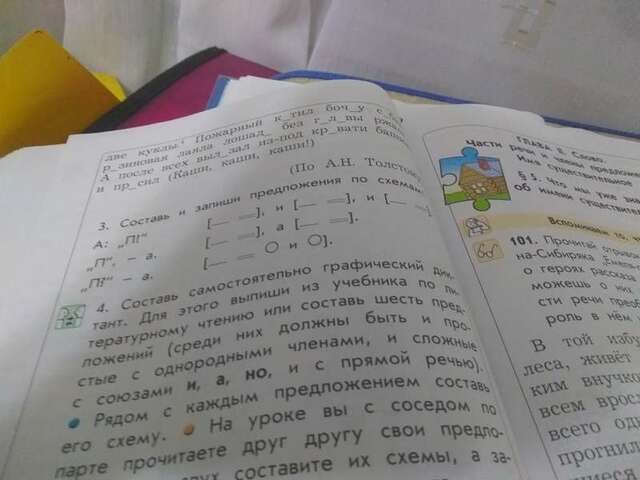 две куклы.! Пожарный к_тил боч_у с
р_зиновая лаяла лошад_ без г_л_вы ржа
А после всех выл_зал из-под кр_вати
и пр_сил (Каши, каши, каши!)
(По А.Н. Толстому
3. Составь и запиши предложения по схемам.
А: „П!" [— =], и [— =], и [— =
„П", – а. [— =], а [— =].
„П!" – а. [— = О и О].
4. Составь самостоятельно графический дик-
тант. Для этого выпиши из учебника по ли-
тературному чтению или составь шесть пред-
ложений (среди них должны быть и про-
стые с однородными членами, и сложные
с союзами и, а, но, и с прямой речью).
• Рядом с каждым предложением составь
его схему. • На уроке вы с соседом по
парте прочитаете друг другу свои предло-
составите их схемы, а за-
ГЛАВА 2. Слово.
Части речи и члены предложе
Имя существительное
§ 5. Что мы уже зна
об имени существите
Вспоминаем то,
101. Прочитай отрывок
на-Сибиряка „Емеля
о героях рассказа
можешь о них
сти речи пред
роль в нём
В той избу
леса, живёт
ким внучко
всем врос
всего од
прогнил